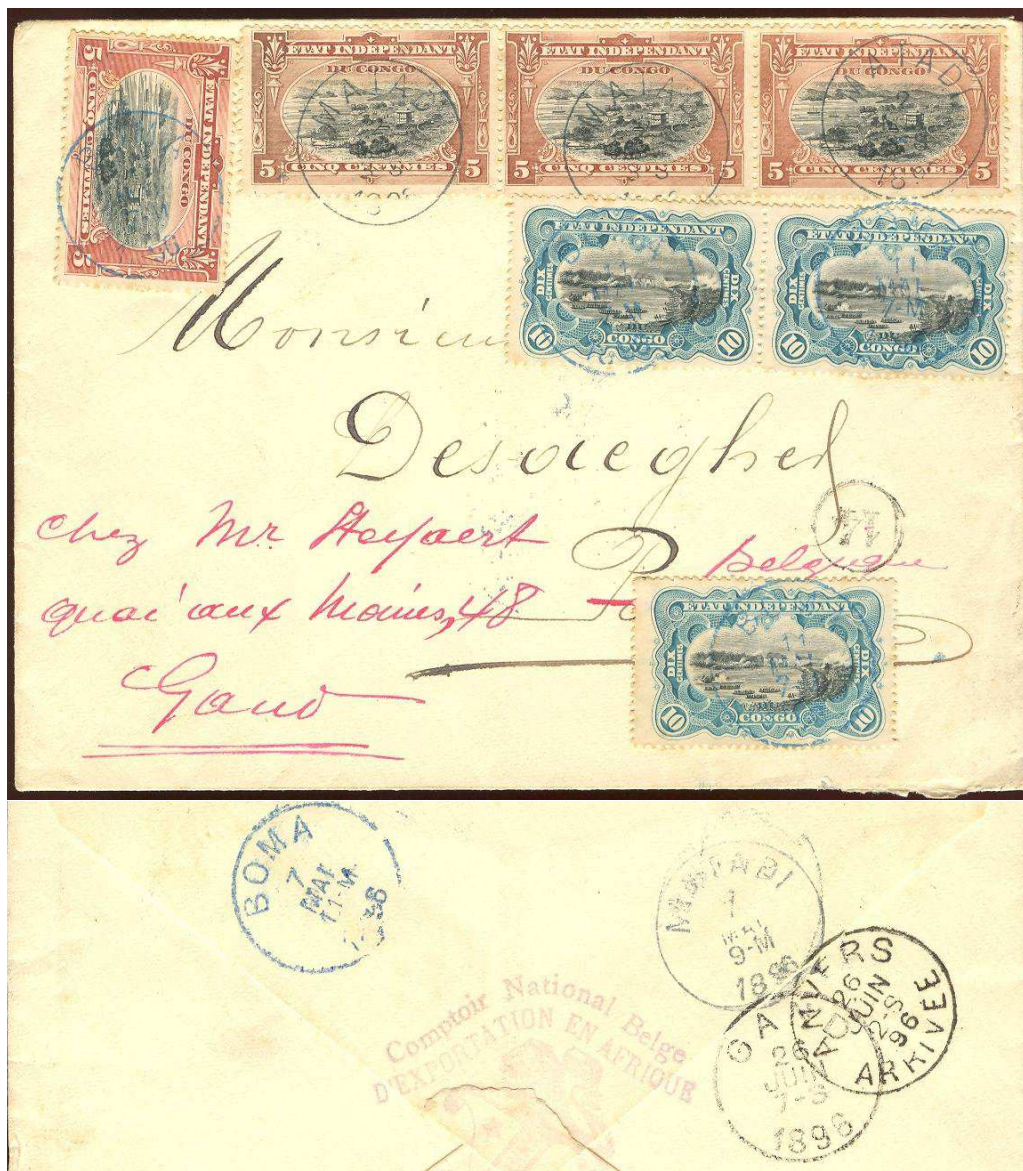 ETAT INDEPENDANT
DU CONGO
5 CINQ CENTIMES 5
ETAT INDEPENDANT
DU CONGO
5 CINQ CENTIMES 5
MATADI
ETAT INDEPENDANT
DU CONGO
5 CINQ CENTIMES 5
MATADI
ETAT INDEPENDANT
DU CONGO
5 CINQ CENTIMES 5
MATADI
ETAT INDEPENDANT
DIX CENTIMES
DIX CENTIMES
10 CONGO 10
ETAT INDEPENDANT
DIX CENTIMES
DIX CENTIMES
10 CONGO 10
Monsieur
Desaeghel
chez Mr Heyaert
Belgique
quai aux Moines, 48
Gand
ETAT INDEPENDANT
DIX CENTIMES
DIX CENTIMES
10 CONGO 10
BOMA
7
MAI
11-M
MATADI
1
MAI
9-M
1896
ANVERS
26
JUIN
2-S
96
ARRIVEE
Comptoir National Belge
D'EXPORTATION EN AFRIQUE
GAND
26
JUIN
7-S
1896